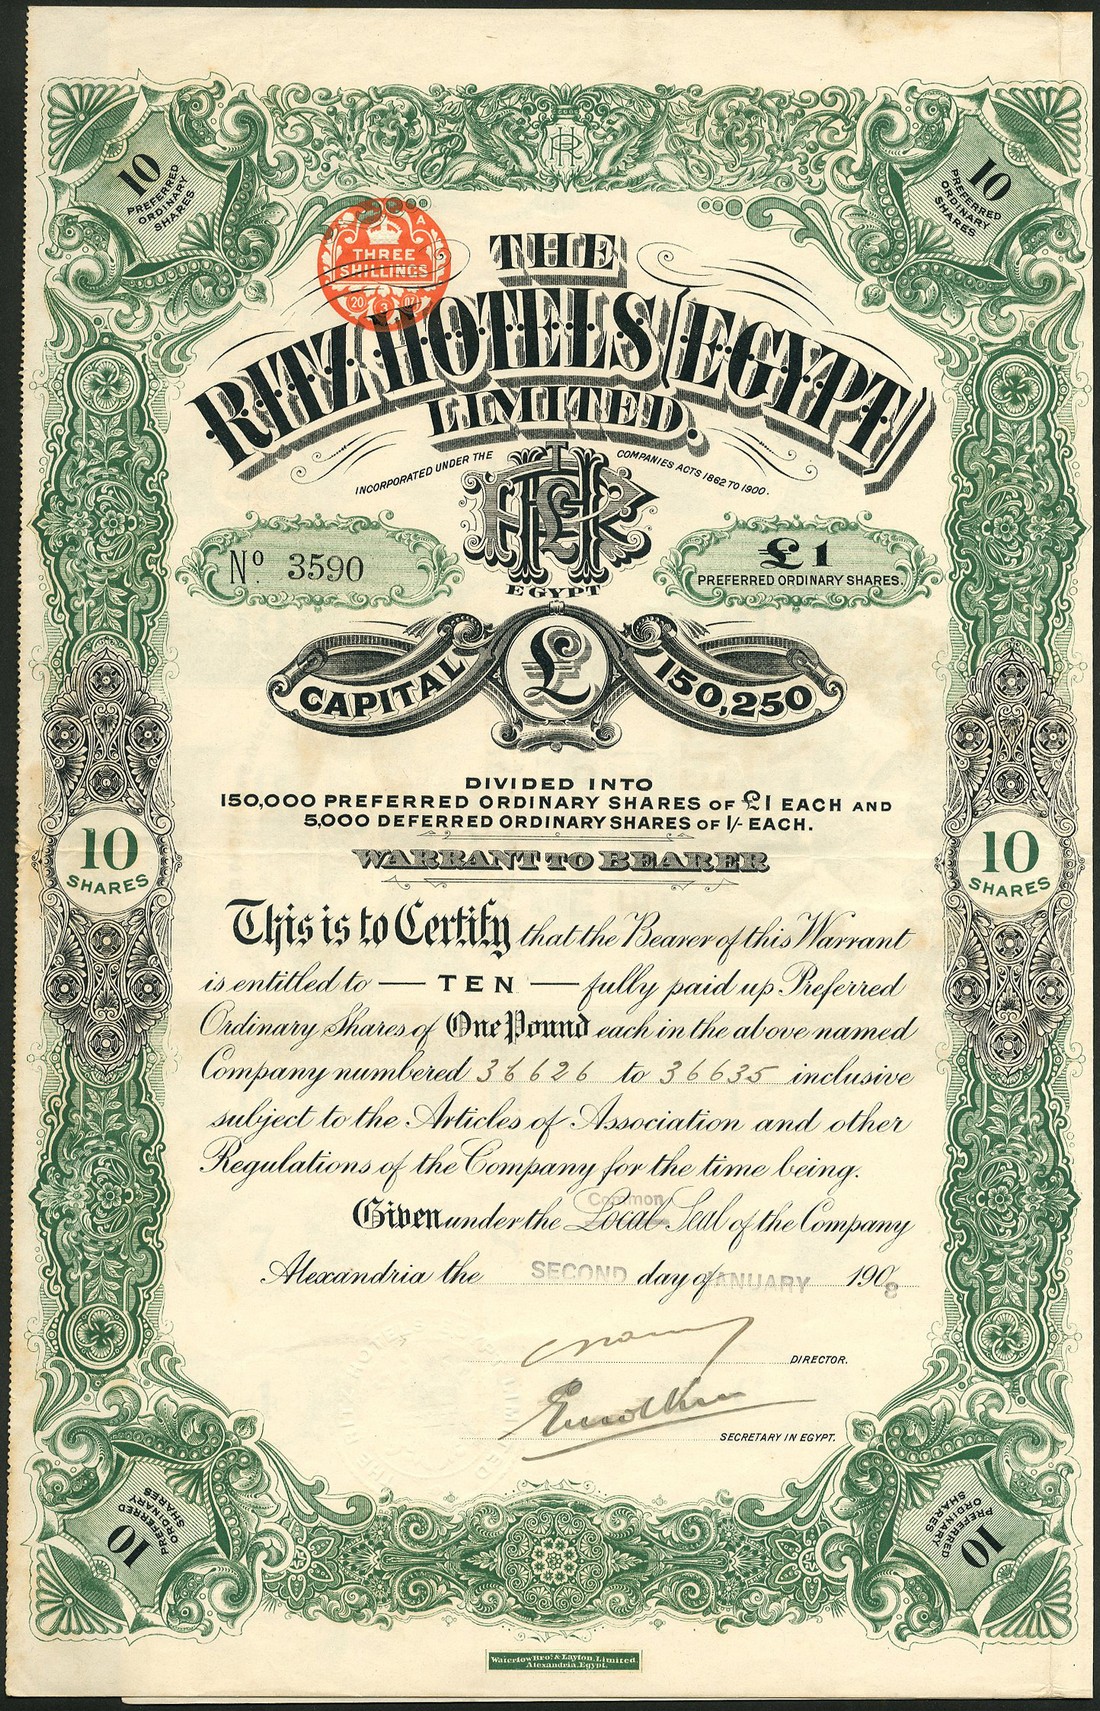 10
PREFERRED
ORDINARY
SHARES
10
PREFERRED
ORDINARY
SHARES
HR
A
THREE
SHILLINGS
20 3 07
THE
RITZ HOTELS (EGYPT)
LIMITED.
INCORPORATED UNDER THE COMPANIES ACTS 1862 TO 1900.
EGYPT
No. 3590
£1
PREFERRED ORDINARY SHARES.
CAPITAL £ 150,250
DIVIDED INTO
150,000 PREFERRED ORDINARY SHARES OF £1 EACH AND
5,000 DEFERRED ORDINARY SHARES OF 1/- EACH.
WARRANT TO BEARER
10
SHARES
10
SHARES
This is to Certify that the Bearer of this Warrant
is entitled to — TEN — fully paid up Preferred
Ordinary Shares of One Pound each in the above named
Company numbered 36626 to 36635 inclusive
subject to the Articles of Association and other
Regulations of the Company for the time being.
Common
Given under the Local Seal of the Company
Alexandria the SECOND day of JANUARY 1908
DIRECTOR.
SECRETARY IN EGYPT.
10
PREFERRED
ORDINARY
SHARES
10
PREFERRED
ORDINARY
SHARES
Waterlow Bros. & Layton, Limited.
Alexandria, Egypt.